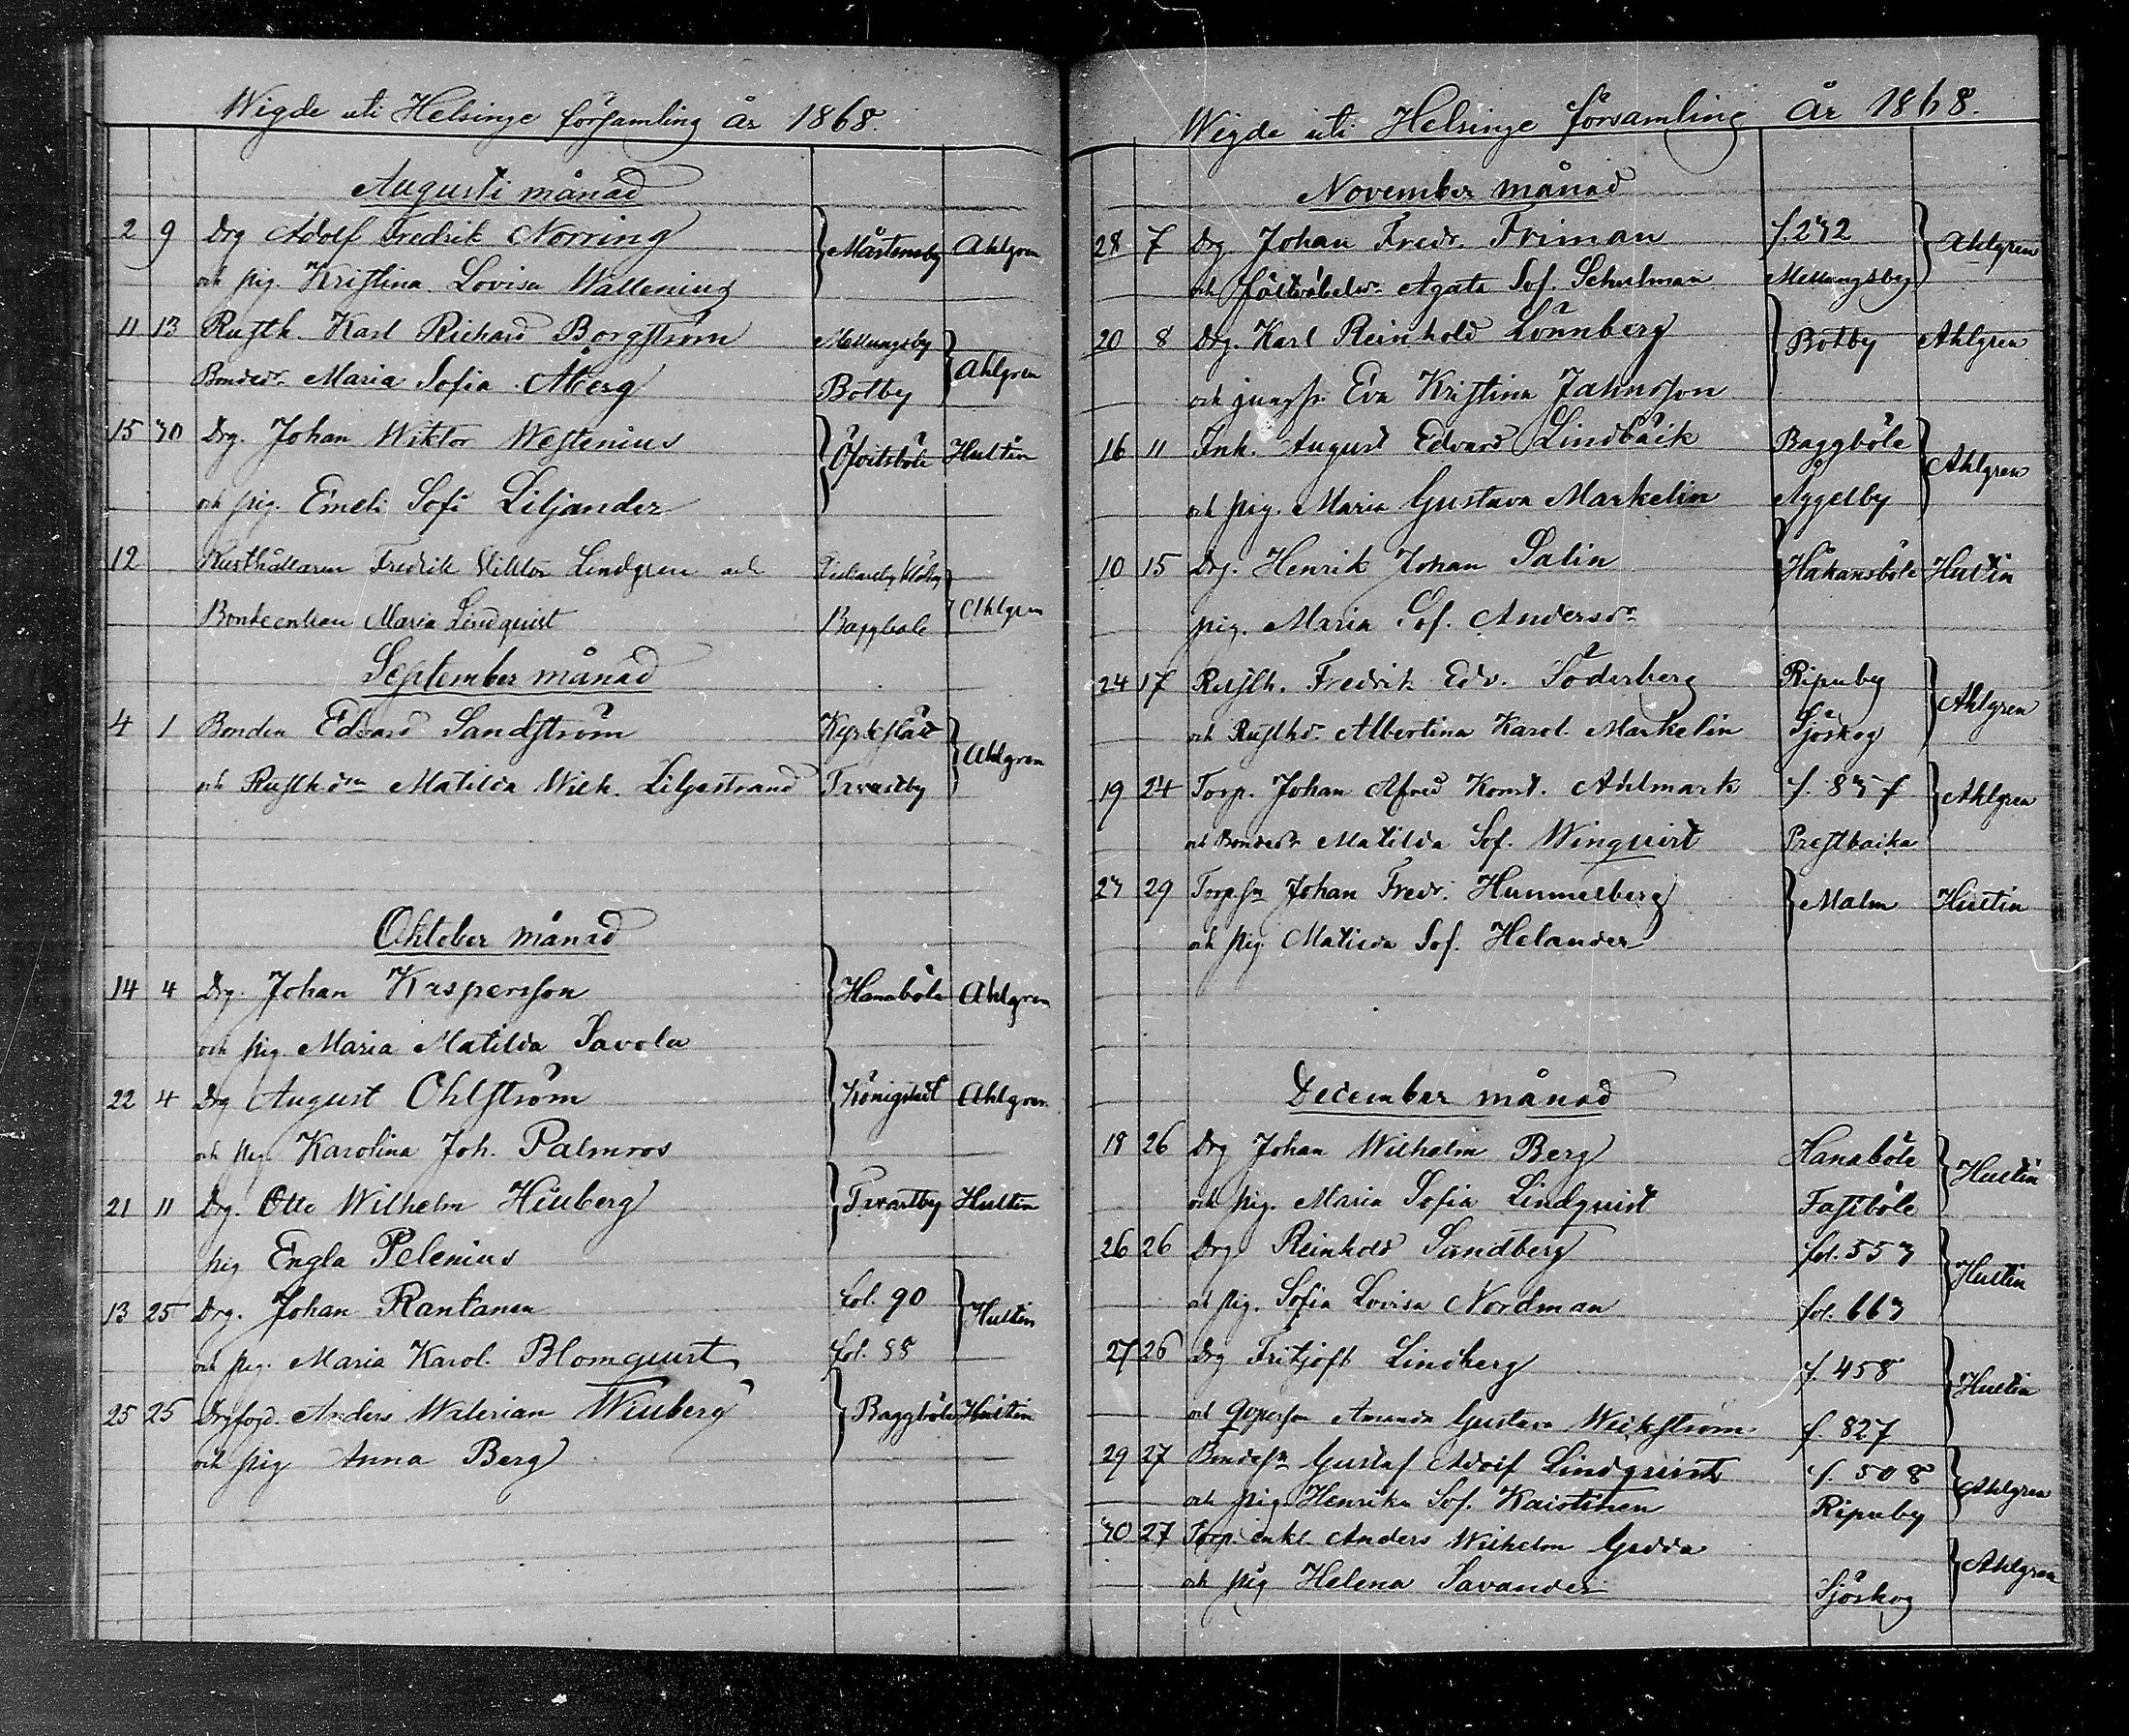 Wigde uti Helsinge församling år 1868.
Augusti månad
2 9 Drg Adolf Fredrik Norring Mårtensby Ahlgren
och pig. Kristina Lovisa Wallenius
11 13 Rusth. Karl Richard Borgström Mellungsby Ahlgren
Bondedr. Maria Sofia Åberg Botby
15 30 Drg. Johan Wiktor Westenius Öfvitsböle Hultin
och pig. Emeli Sofi Liljander
12 Rusthållaren Fredrik Viktor Lindgren och Dickursby
Bondeenkan Maria Lindquist Baggböle Ahlgren
September månad
4 1 Bonden Edvard Sandström Kyrkslätt Ahlgren
och Rusthdrn Matilda Wilh. Liljestrand Tavastby
Oktober månad
14 4 Drg. Johan Kaspersson Hanaböle Ahlgren
och pig. Maria Matilda Savola
22 4 Drg August Ohlström Königstedt Ahlgren
och pig. Karolina Joh. Palmroos
21 11 Drg. Otto Wilhelm Hiuberg Tavastby Hultin
pig Engla Pelenius
13 25 Drg. Johan Rantanen fol. 90 Hultin
och pig. Maria Karol. Blomquist fol. 88
25 25 Anders Walerian Wiuberg Baggböle Hultin
och pig Anna Berg
Wigde uti Helsinge församling år 1868.
November månad
28 7 Drg Johan Fredr. Friman f. 232 Ahlgren
och Agata Sof. Schulman Mellungsby
20 8 Drg. Karl Reinhold Lönnberg Botby Ahlgren
och jungfr. Eva Kristina Jahnsson
16 11 Inh. August Edvard Lindbäck Baggböle Ahlgren
och pig. Maria Gustava Markelin Åggelby
10 15 Drg. Henrik Johan Salin Håkansböle Hultin
pig. Maria Sof. Andersdr.
24 17 Rusth. Fredrik Edv. Söderberg Ripuby Ahlgren
och Rusthdr. Albertina Karol. Markelin Sjöskog
19 24 Torp. Johan Alfred Konst. Ahlmark f. 837 Ahlgren
och Bondedr. Matilda Sof. Winquist Prestbacka
23 29 Torpsn Johan Fredr. Hummelberg Malm Hultin
och pig. Matilda Sof. Helander
December månad
18 26 Drg Johan Wilhelm Berg Hanaböle Hultin
och pig. Maria Sofia Lindquist Fastböle
26 26 Drg. Reinhold Sandberg fol. 553 Hultin
och pig. Sofia Lovisa Nordman fol. 663
27 26 Drg Fritjoff Lindberg f. 458 Hultin
och Qvpersn Amanda Gustava Weckström f. 827
29 27 Bondesn Gustaf Adolf Lindqvist f. 508 Ahlgren
och pig. Henrika Sof. Kaistinen Ripuby
30 27 Torp. enkl. Anders Wilhelm Gedda Ahlgren
och pig Helena Savander Sjöskog